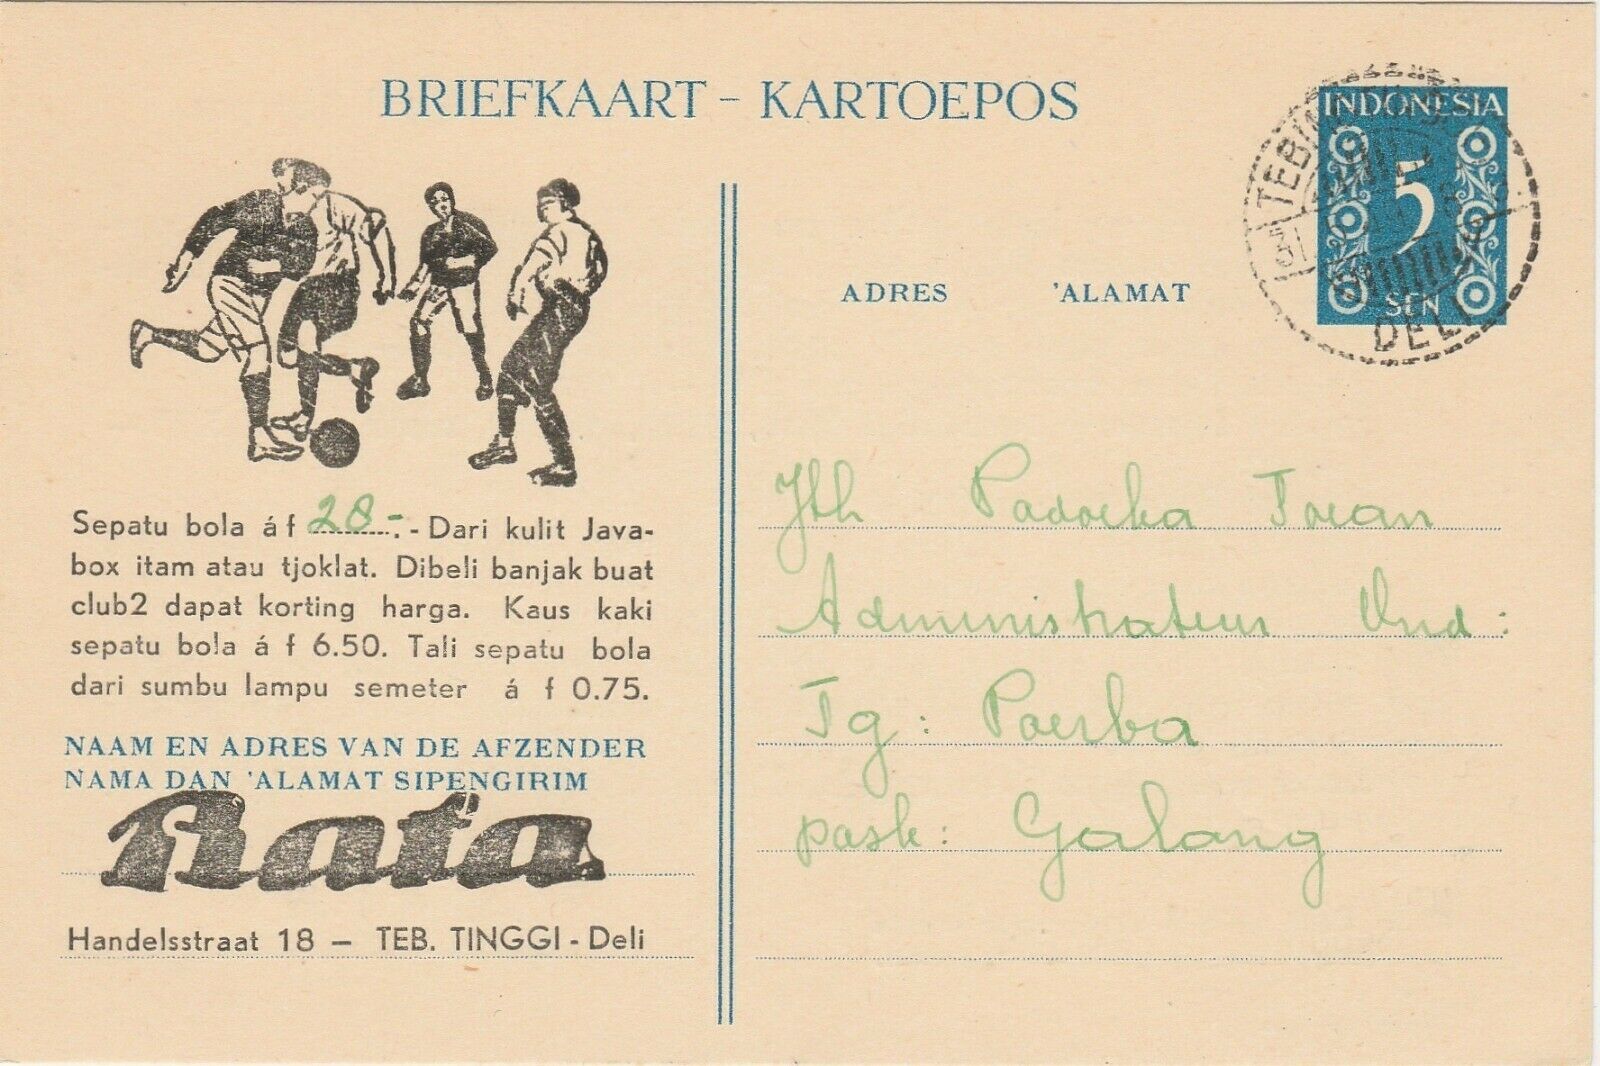 BRIEFKAART - KARTOEPOS
INDONESIA
5
SEN
TEBING
DELI
ADRES 'ALAMAT
Sepatu bola á f 28.-.- Dari kulit Java-
box itam atau tjoklat. Dibeli banjak buat
club2 dapat korting harga. Kaus kaki
sepatu bola á f 6.50. Tali sepatu bola
dari sumbu lampu semeter á f 0.75.
NAAM EN ADRES VAN DE AFZENDER
NAMA DAN 'ALAMAT SIPENGIRIM
Bata
Handelsstraat 18 – TEB. TINGGI - Deli
Jth Padoeka Toean
Administrateur Ond:
Tg: Poerba
pask: Galang